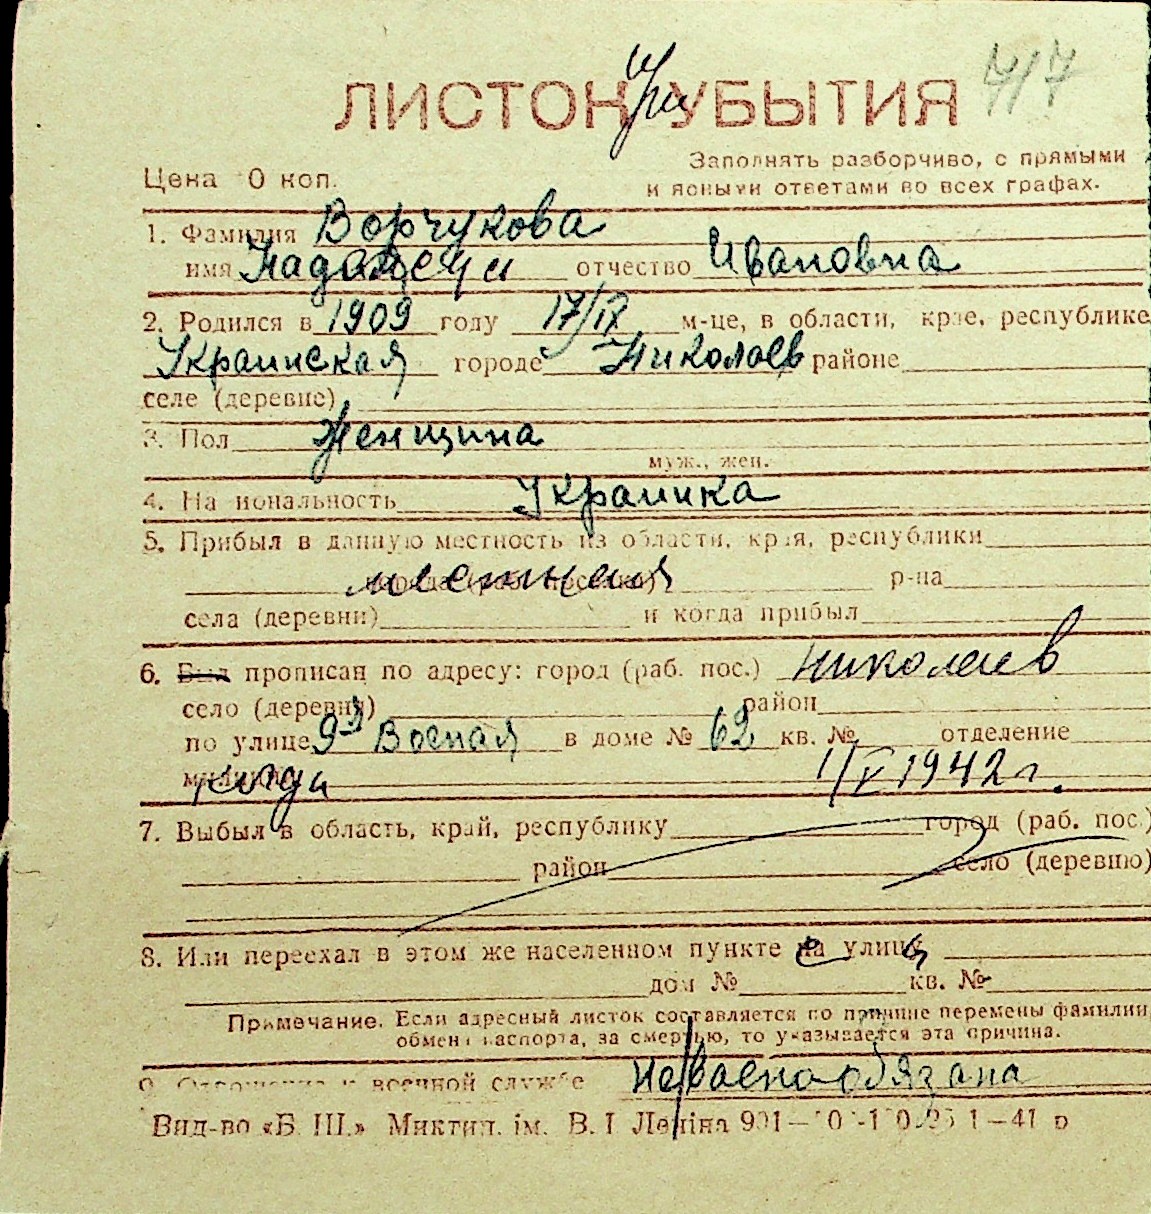 717
ЛИСТОК При УБЫТИЯ
Заполнять разборчиво, с прямыми
Цена 0 коп. и ясными ответами во всех графах.
1. Фамилия Ворчукова
имя отчество Ивановна
2. Родился в 1909 году 17/IX м-це, в области, крае, республике
Украинская городе Николаев районе
селе (деревне)
3. Пол Женщина
муж., жен.
4. Национальность Украинка
5. Прибыл в данную местность из области, края, республики
местная р-на
села (деревни) и когда прибыл
6. Был прописан по адресу: город (раб. пос.) Николаев
село (деревня) район
по улице 9я Военая в доме № 62 кв. № отделение
когда 1/V 1942 г.
7. Выбыл в область, край, республику город (раб. пос.)
район село (деревню)
8. Или переехал в этом же населенном пункте на улицу
дом № кв. №
Примечание. Если адресный листок составляется по причине перемены фамилии,
обмена паспорта, за смертью, то указывается эта причина.
9. Отношение к военной службе Невоенообязана
Вид-во «Б. Ш.» Миктип. ім. В. І Леніна